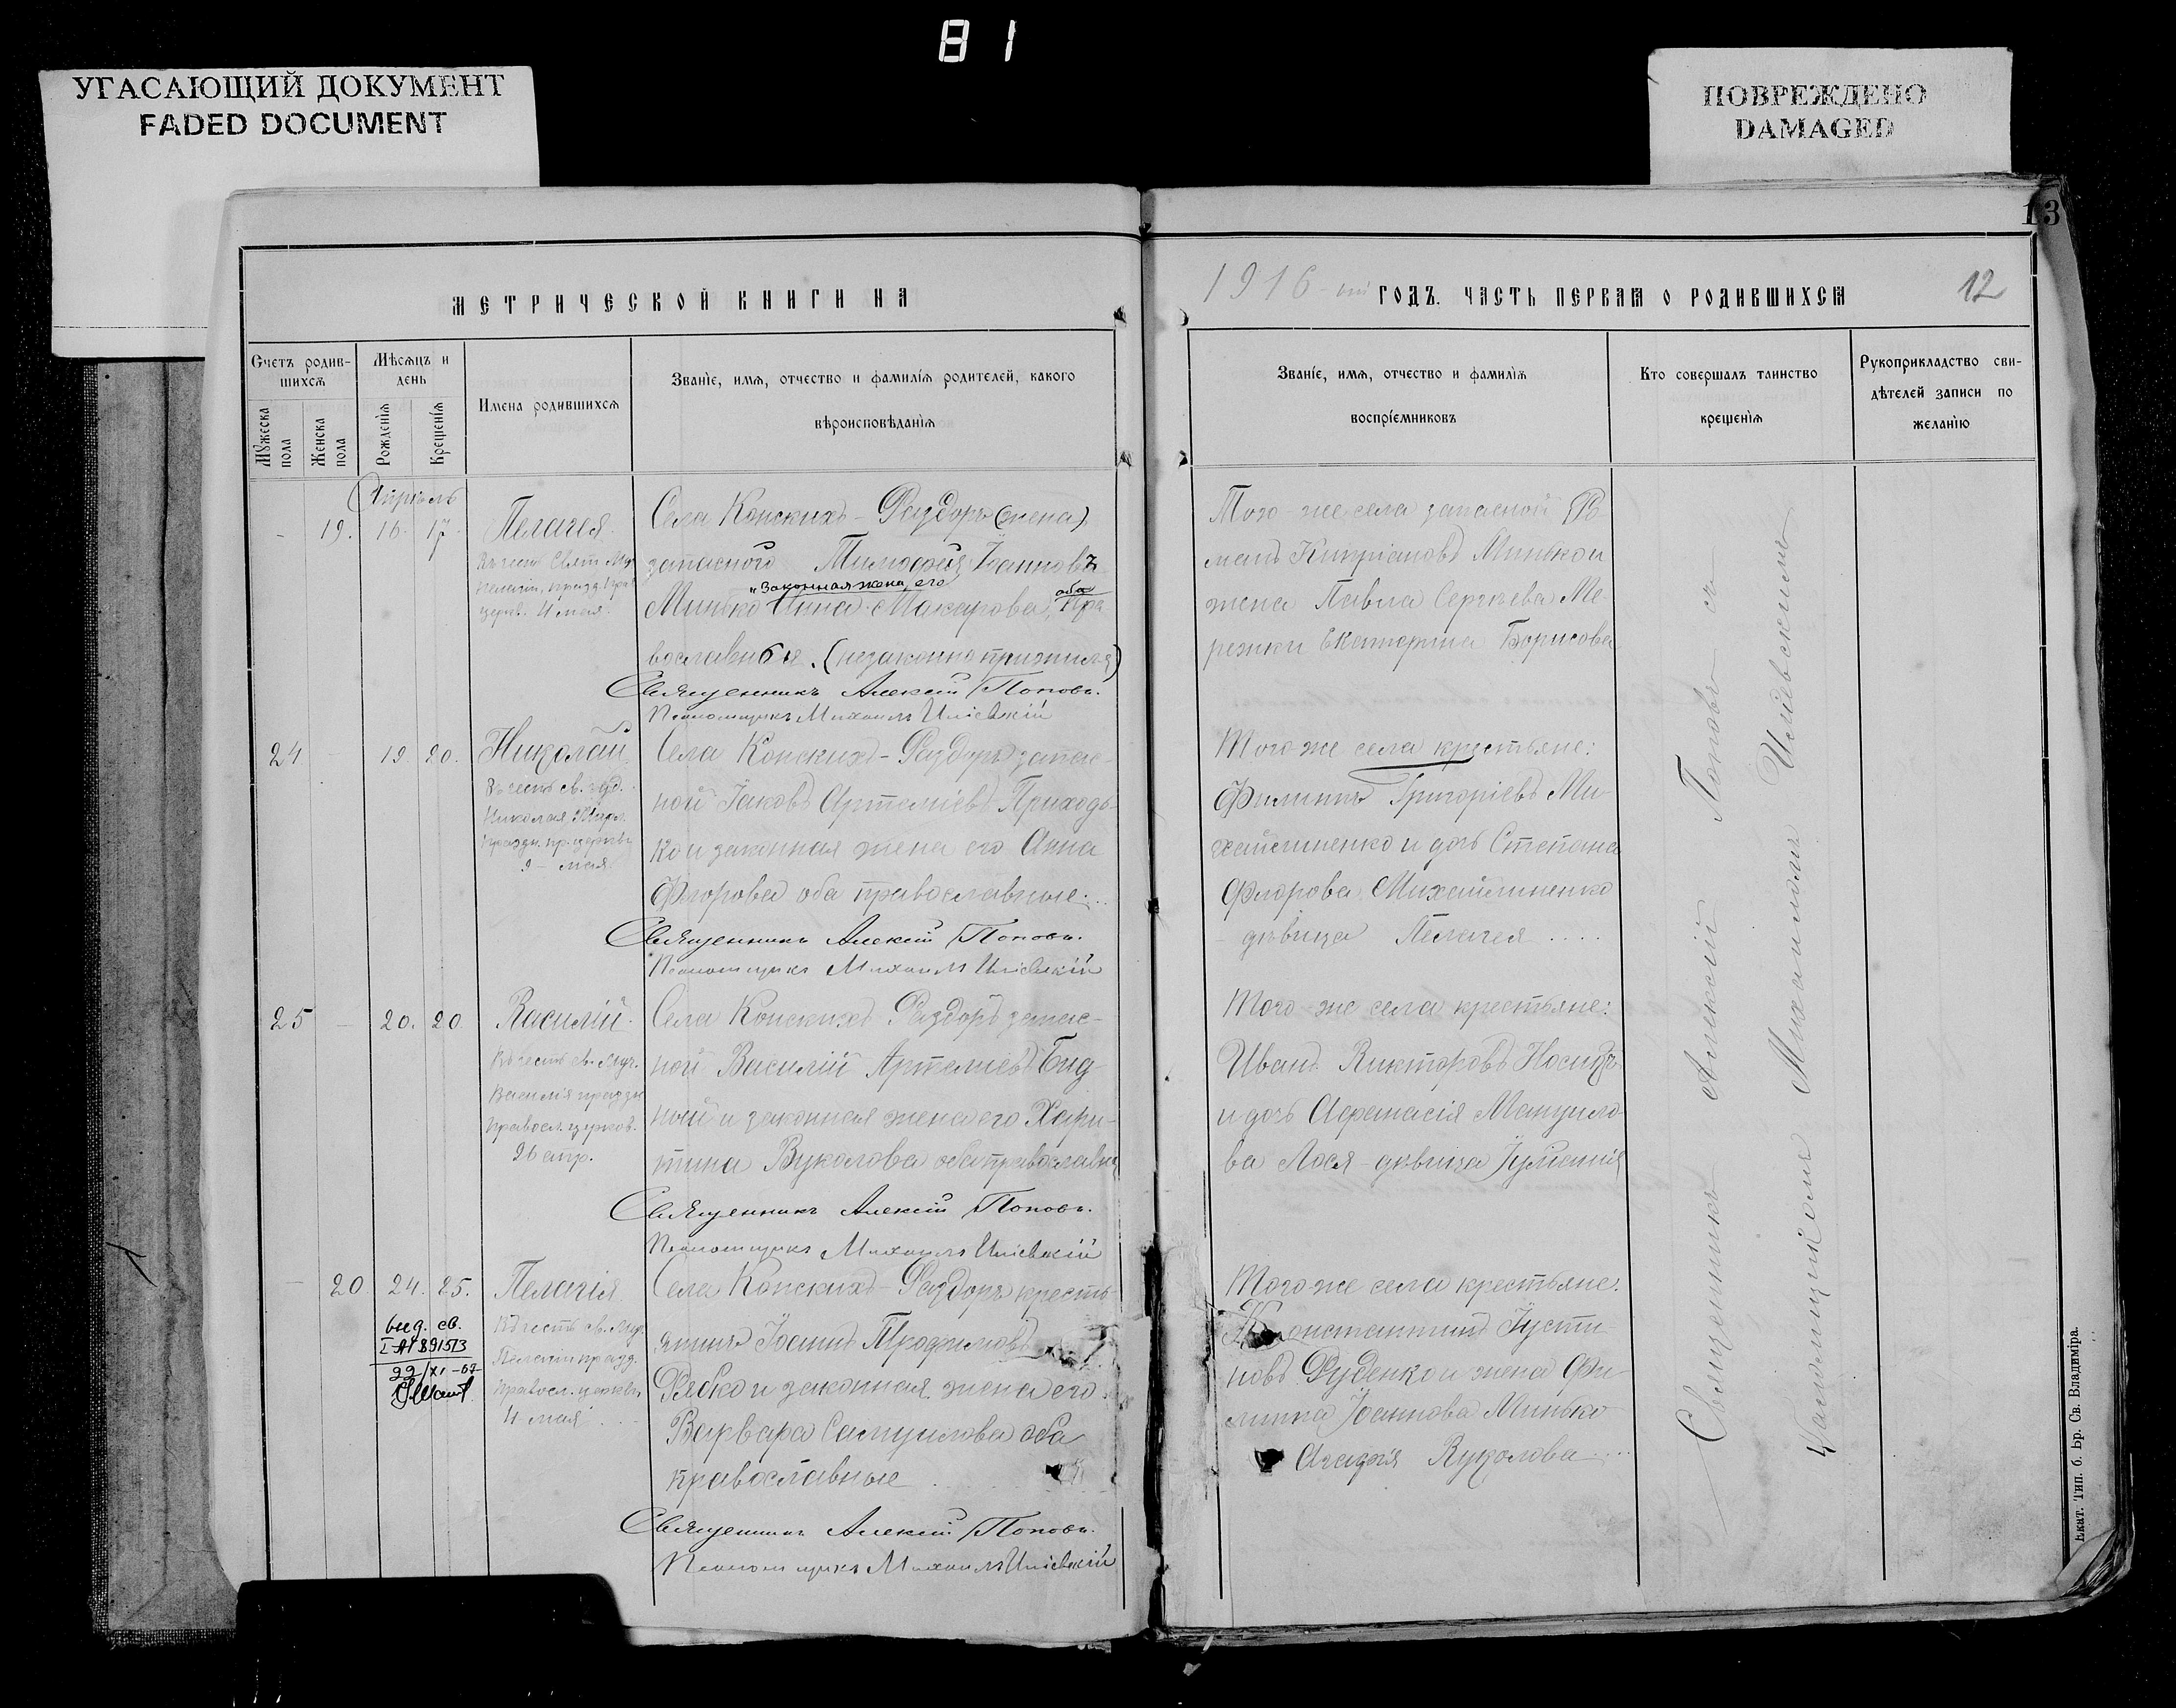 81
УГАСАЮЩИЙ ДОКУМЕНТ
FADED DOCUMENT
ПОВРЕЖДЕНО
DAMAGED
13
МЕТРИЧЕСКОЙ КНИГИ НА
1916-ый ГОДЪ. ЧАСТЬ ПЕРВАЯ О РОДИВШИХСЯ
12
Счетъ родив-
шихсѧ
Мужеска пола
Женска пола
Мѣсѧцъ и
день
Рожденїѧ
Крещенїѧ
Имена родившихсѧ
Званїе, имѧ, отчество и фамилїѧ родителей, какого
вѣроисповѣданїѧ
Званїе, имѧ, отчество и фамилїѧ
воспрїемниковъ
Кто совершалъ таинство
крещенїѧ
Рукоприкладство сви-
дѣтелей записи по
желанїю
Апрѣль
- 19. 16. 17.
Пелагея.
Въ честь Свят. Муч.
Пелагіи, празд. прав.
церк. 4 мая.
Села Конскихъ-Раздоръ (жена)
запасного Тимофея Іоанновъ
"Законная жена его
Минько Анна Макарова, оба Пра
вославные. (незаконно прижила)
Священникъ Алексій Поповъ.
Псаломщикъ Михаилъ
Того-же села запасной Ро
манъ Кипріановъ Минько и
жена Павла Сергѣева Ме
режки Екатерина Борисова
24 19. 20.
Николай
Въ честь св. чуд.
Николая
праздн. пр. церковь
9 - мая
Села Конскихъ-Раздоръ запас-
ной Іаковъ Артеміевъ Приходь
ко и законная жена его Анна
Флорова оба православные...
Священникъ Алексій Поповъ.
Псаломщикъ Михаилъ
Того-же села крестьяне:
Филиппъ Григоріевъ Ми-
хайлиненко и дочь Степана
Флорова Михайлиненко
дѣвица Пелагея ....
25 - 20. 20
Василій.
Въ честь св. муч.
Василія праздн
православ. церков.
26 апр.
Села Конскихъ-Раздоръ запас-
ной Василій Артеміевъ Бид-
ной и законная жена его Хари-
тина Вуколова оба православны
Священникъ Алексій Поповъ.
Псаломщикъ Михаилъ
Того-же села крестьяне:
Иванъ Викторовъ
и дочь Афанасія Мануило-
ва Лося - дѣвица
- 20 24. 25.
выд. св.
891513
22/XI-67
Пелагія
Въ честь св. муч.
Пелагіи празд.
правосл. церковь
4 мая
Села Конскихъ-Раздоръ кресть
янинъ Іоаннъ Трофимовъ
Рябко и законная жена его
Варвара Самуилова оба
православные
Священникъ Алексій Поповъ.
Псаломщикъ Михаилъ
Того-же села крестьяне.
Константинъ Іусти-
новъ Руденко и жена Фи-
липпа Іоаннова Минько
Агафія Вуколова ....
Священникъ Алексій Поповъ съ
Псаломщикомъ Михаиломъ
Екат. Тип. б. Бр. Св. Владимiра.